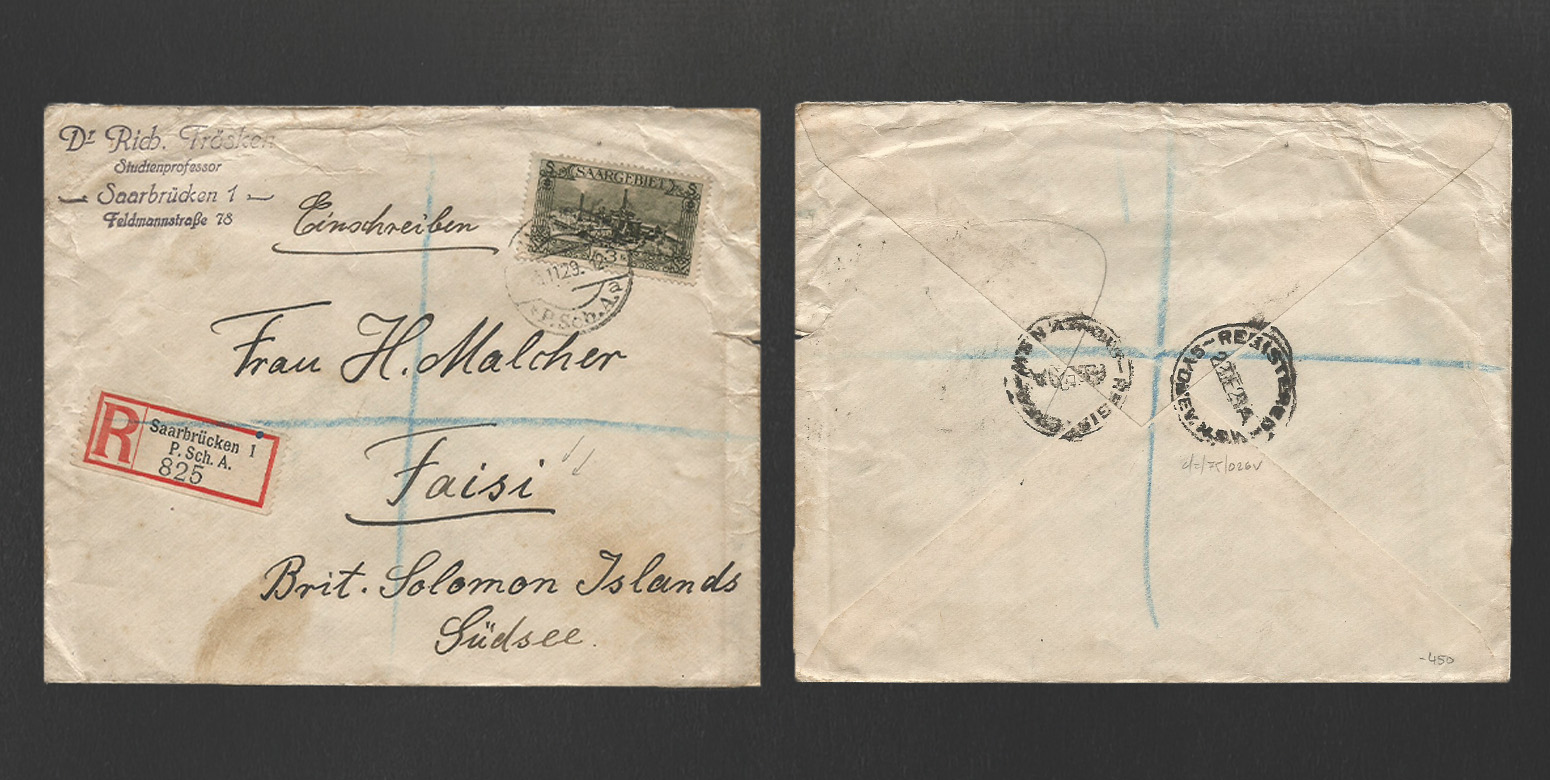 Dr Rich. Trösken
Studienprofessor
Saarbrücken 1
Feldmannstraße 78
Einschreiben
SAARGEBIET
3
11.29.
P.Sch.A. a
Frau H. Malcher
R
Saarbrücken 1
P. Sch. A.
825
Faisi
Brit. Solomon Islands
Südsee.
REGISTERED
N.S.W.
-450